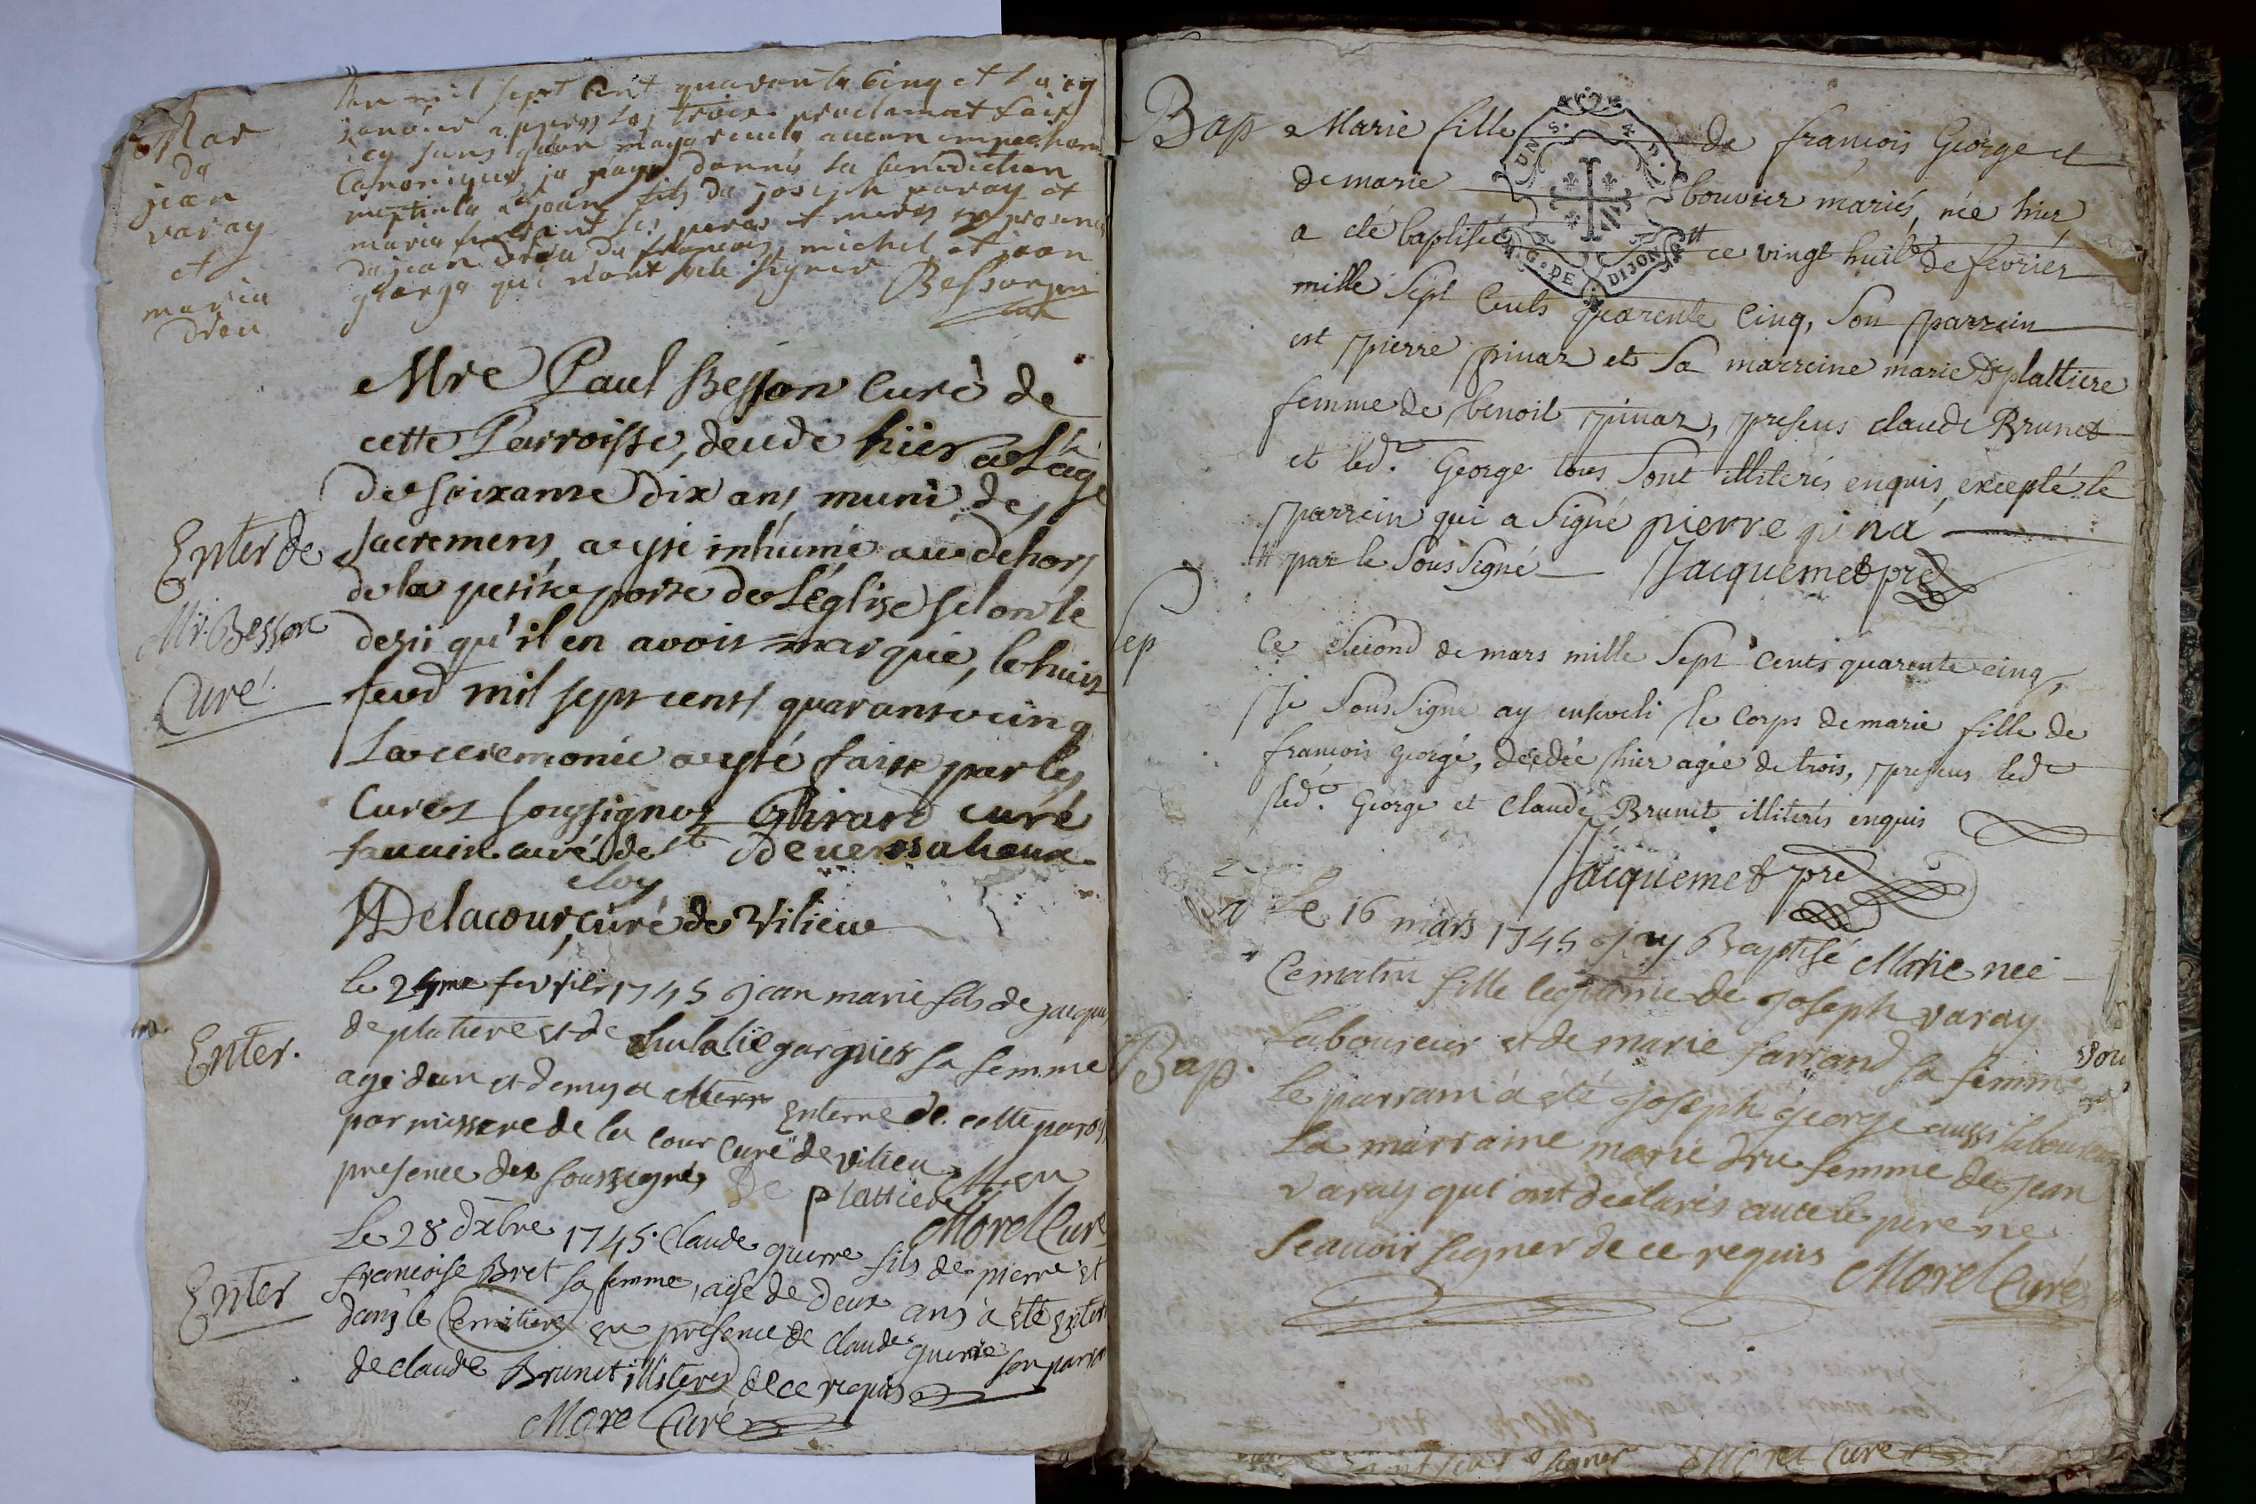 Mar
de
jean
varay
et
maria
dreu
lan mil sept cent quaranta cinq et
janvier appres las trois proclamat fait
icy sans quon maye aucun impechem
Canonique je j'aye donnés la benediction
nuptiala a joan fils da joseph varay et
maria ses peres et meres en presence
da jean dreu da francois michel et joan
georga qui n'ont sceu signer Besson
Mre Paul Besson Curé de
cette Parroisse, decede hiier a L'age
de soixante dix ans, muni des
sacremens a esté inhumé au dehors
de la petite porte de L'église selon le
desir qu'il en avoit marqué, le huit
feud mil sept cents quarante cinq
La ceremonie a esté faitte par les
Curez soussignez Girard curé
curé de st
eloy
Delacour, curé de Vilieu
Enter de
Mr. Besson
Curé.
Enter.
le 24me fevrier 1745 jean marie fils de jacque
de platiere et de gargnier sa femme
agé d'un et demy a enterré de cette paroi
par missire de la cour curé de vilieu en
presence des soussignes De plattiere
Morel Curé
Enter
Le 28 dxbre 1745 Claude guerre fils de pierre et
francoise Bret sa femme, agé de deux ans a été enterr
dans le Cemitiere en presence de Claude guerre son parr
de claude Brunet illiteres de ce requis
Morel Curé
Bap
Marie fille de françois George et
de marie bouvier mariés, née hier
a été baptisée ce vingt huit de fevrier
mille sept cents quarente cinq, son parrein
est pierre pinaz et sa marreine marie Deplattiere
femme de benoit pinaz, presens claude Brunet
et led. George tous sont illiterés enquis, excepté le
parrein qui a signé pierre pina
par le soussigné Jacquemet pre
UNS. 4 D.
G. DE DIJON
Sep
Ce second de mars mille sept cents quarente cinq,
Je soussigné ay enseveli le corps de marie fille de
francois george, decedée hier agée de trois, presens led
led. George et Claude Brunet illiterés enquis
Jacquemet pre
Bap.
Le 16 mars 1745 j'ay Baptisé Marie née
ce matin fille legitime de joseph varay
laboureur et de marie farrand sa femme
le parrain a été joseph george aussi laboureur
La marraine marie dru femme de jean
varay qui ont declarés avec le pere ne
scauoir signer de ce requis Morel Curé
signer Morel Curé